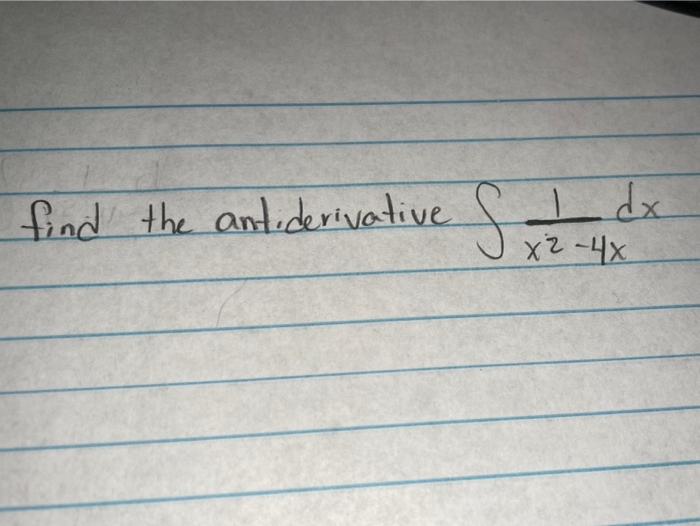 find the antiderivative ∫ 1/(x² - 4x) dx